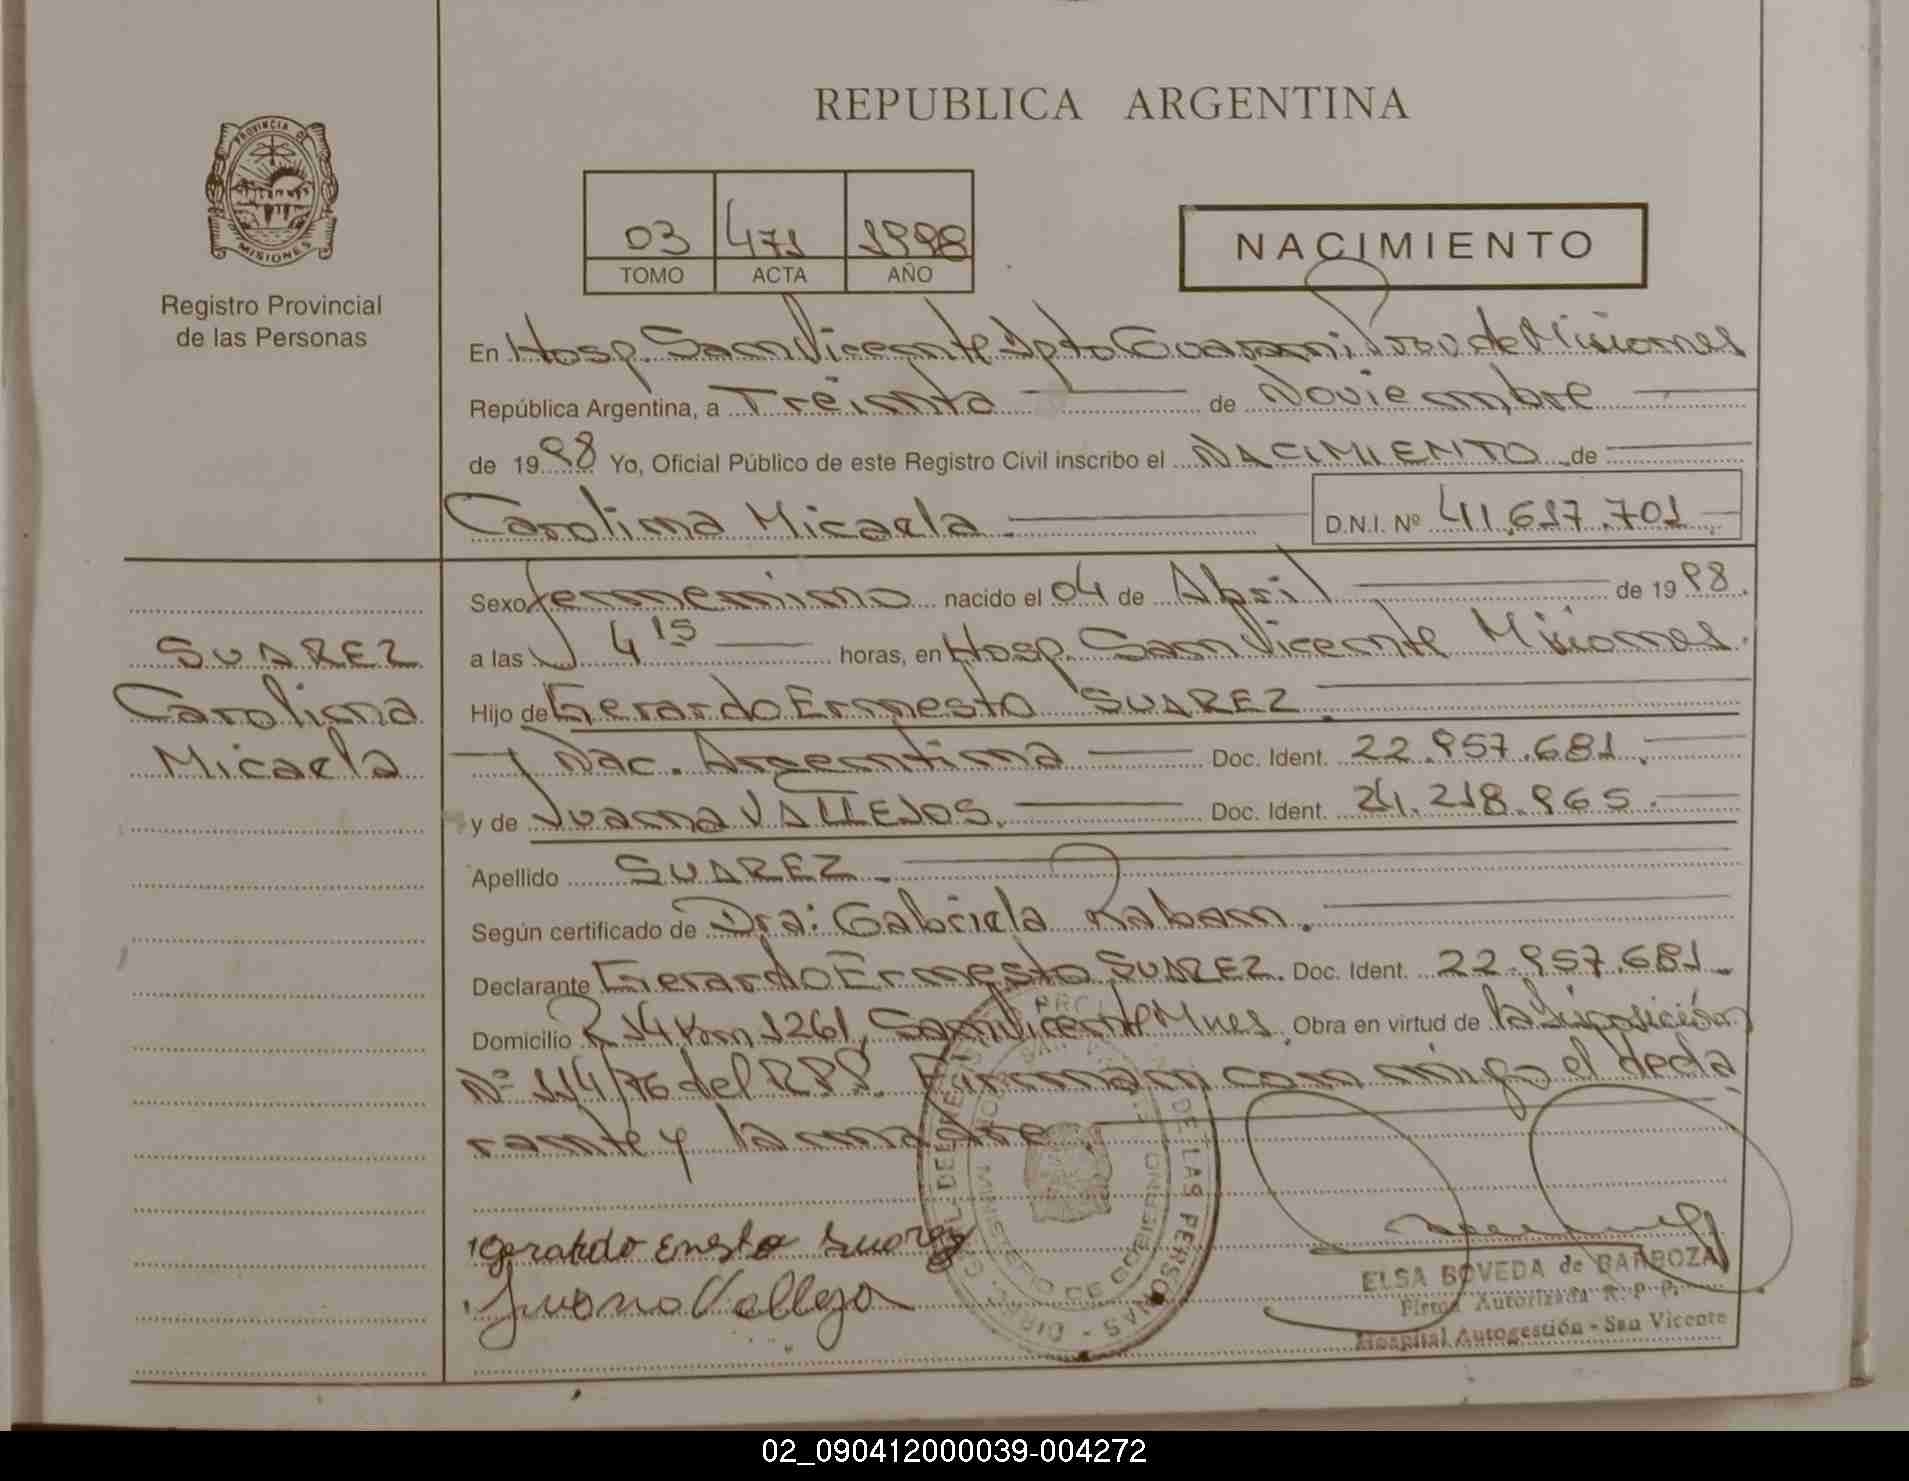 REPUBLICA ARGENTINA
PROVINCIA DE
MISIONES
Registro Provincial
de las Personas
03 471 1998
TOMO ACTA AÑO
NACIMIENTO
En Hosp. San Vicente Dpto Guarani, Prov. de Misiones
República Argentina, a Treinta de Noviembre
de 1998 Yo, Oficial Público de este Registro Civil inscribo el NACIMIENTO de
Carolina Micaela D.N.I. Nº 41.617.701
SUAREZ
Carolina
Micaela
Sexo femenino nacido el 04 de Abril de 1998.
a las 4 15 horas, en Hosp. San Vicente Misiones.
Hijo de Gerardo Ernesto SUAREZ.
Nac. Argentina Doc. Ident. 22.957.681.
y de Juana VALLEJOS. Doc. Ident. 24.218.965.
Apellido SUAREZ
Según certificado de Dra: Gabriela Raban.
Declarante Gerardo Ernesto SUAREZ. Doc. Ident. 22.957.681
Domicilio R 14 Km 1261, San Vicente Mnes. Obra en virtud de la Disposición
Nº 114/76 del R.P.P. Firman con migo el decla
rante y la madre
Gerardo Ernesto Suarez
Juana Vallejo
DE LAS PERSONAS - DIREC. GRAL. DEL REG.
MINISTERIO DE GOBIERNO
ELSA BOVEDA de BARBOZA
Firma Autorizada R. P. P.
Hospital Autogestión - San Vicente
02_090412000039-004272